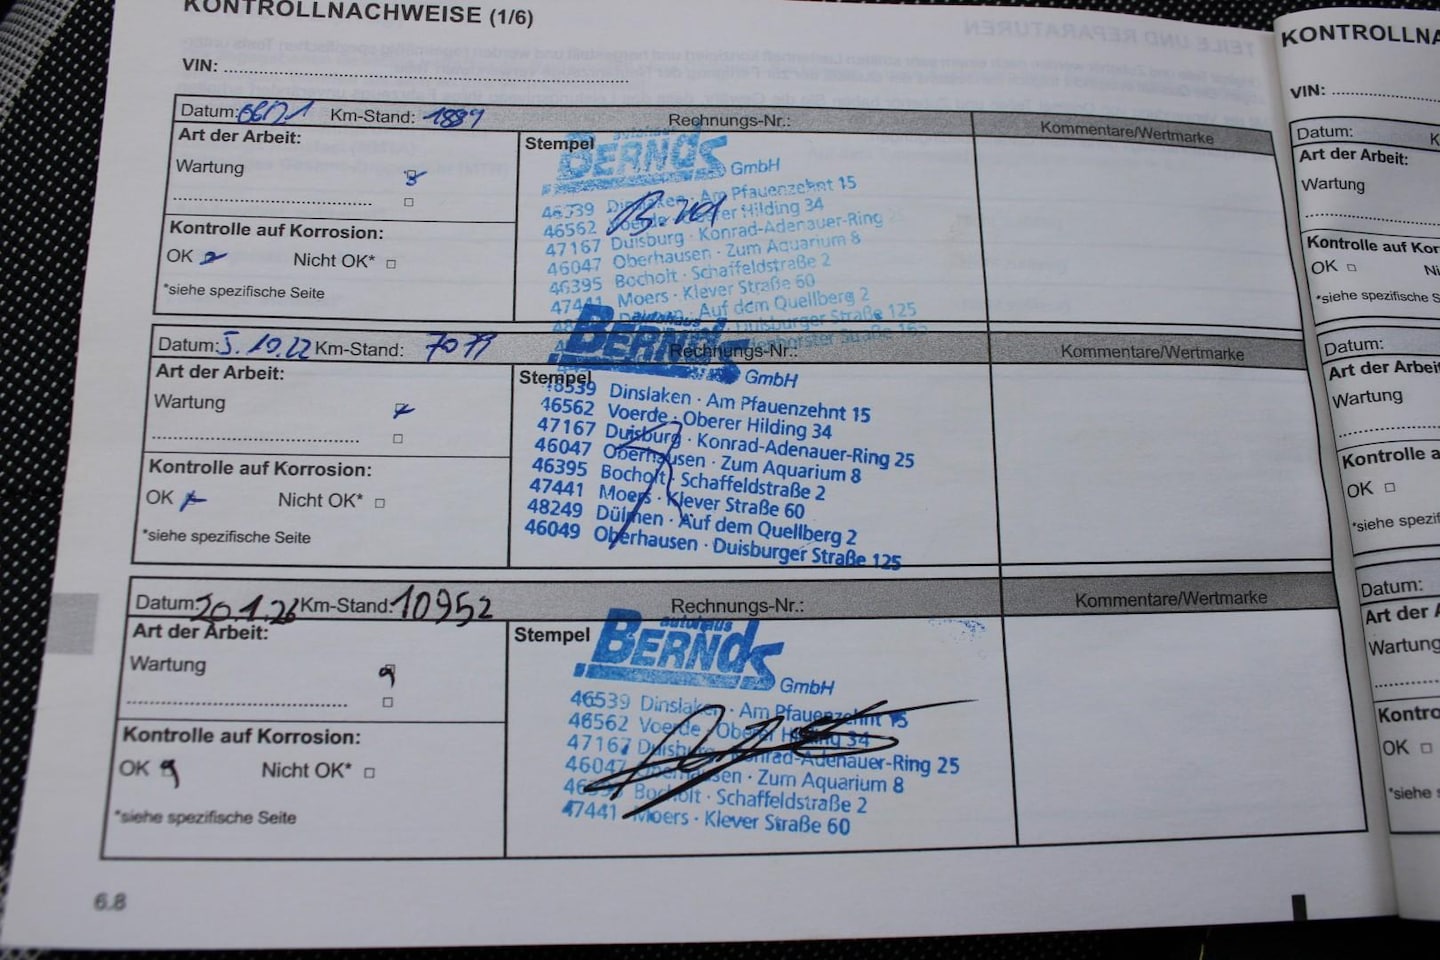 KONTROLLNACHWEISE (1/6)
VIN:
Datum: 06/21 Km-Stand: 1889 Rechnungs-Nr.: Kommentare/Wertmarke
Art der Arbeit:
Wartung
Kontrolle auf Korrosion:
OK Nicht OK*
*siehe spezifische Seite
Stempel
autohaus
BERNDS
GmbH
46539 Dinslaken · Am Pfauenzehnt 15
46562 Voerde · Oberer Hilding 34
47167 Duisburg · Konrad-Adenauer-Ring 25
46047 Oberhausen · Zum Aquarium 8
46395 Bocholt · Schaffeldstraße 2
47441 Moers · Klever Straße 60
Dülmen · Auf dem Quellberg 2
Duisburger Straße 125
Datum: 5.10.22 Km-Stand: 7079 Rechnungs-Nr.: Kommentare/Wertmarke
Art der Arbeit:
Wartung
Kontrolle auf Korrosion:
OK Nicht OK*
*siehe spezifische Seite
Stempel
autohaus
BERNDS
GmbH
46539 Dinslaken · Am Pfauenzehnt 15
46562 Voerde · Oberer Hilding 34
47167 Duisburg · Konrad-Adenauer-Ring 25
46047 Oberhausen · Zum Aquarium 8
46395 Bocholt · Schaffeldstraße 2
47441 Moers · Klever Straße 60
48249 Dülmen · Auf dem Quellberg 2
46049 Oberhausen · Duisburger Straße 125
Datum: 20.1.26 Km-Stand: 10952 Rechnungs-Nr.: Kommentare/Wertmarke
Art der Arbeit:
Wartung
Kontrolle auf Korrosion:
OK Nicht OK*
*siehe spezifische Seite
Stempel
autohaus
BERNDS
GmbH
46539 Dinslaken · Am Pfauenzehnt 15
46562 Voerde · Oberer Hilding 34
47167 Duisburg · Konrad-Adenauer-Ring 25
46047 Oberhausen · Zum Aquarium 8
46395 Bocholt · Schaffeldstraße 2
47441 Moers · Klever Straße 60
6.8
KONTROLLNA
VIN:
Datum: K
Art der Arbeit:
Wartung
Kontrolle auf Kor
OK Ni
*siehe spezifische S
Datum:
Art der Arbei
Wartung
Kontrolle a
OK
*siehe spezif
Datum:
Art der A
Wartung
Kontro
OK
*siehe s